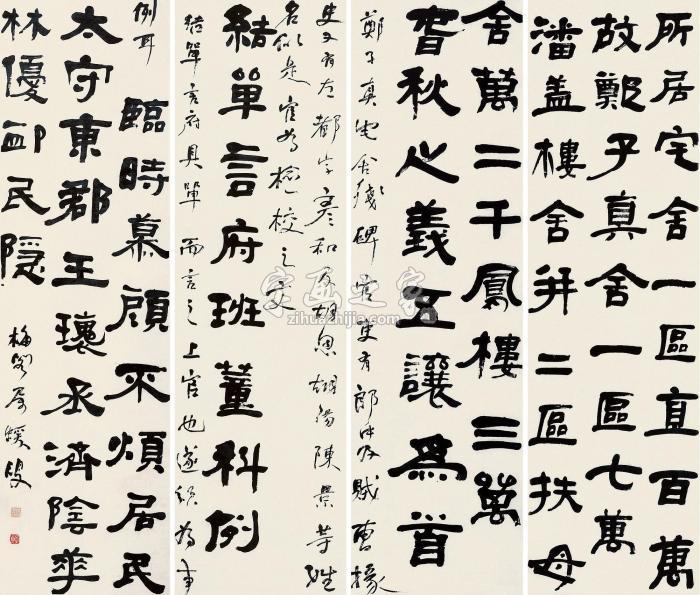 所居宅舍一區直百萬
故鄭子真舍一區七萬
潘盖樓舍并二區扶母
舍萬二千鳳樓三萬
春秋之義五讓為首
鄭子真宅舍殘碑官吏有郎中及賊曹掾
史又有左都字彥和及胡恩胡陽陳景等姓
名似是官為檢校之文
結單言府班董科例
結單言府具單而言之上官也遂領為事
例耳
臨時慕顧不煩居民
太守東郡王瓌丞濟陰華
林優卹民隱
字画之家
zihuazhijia.com